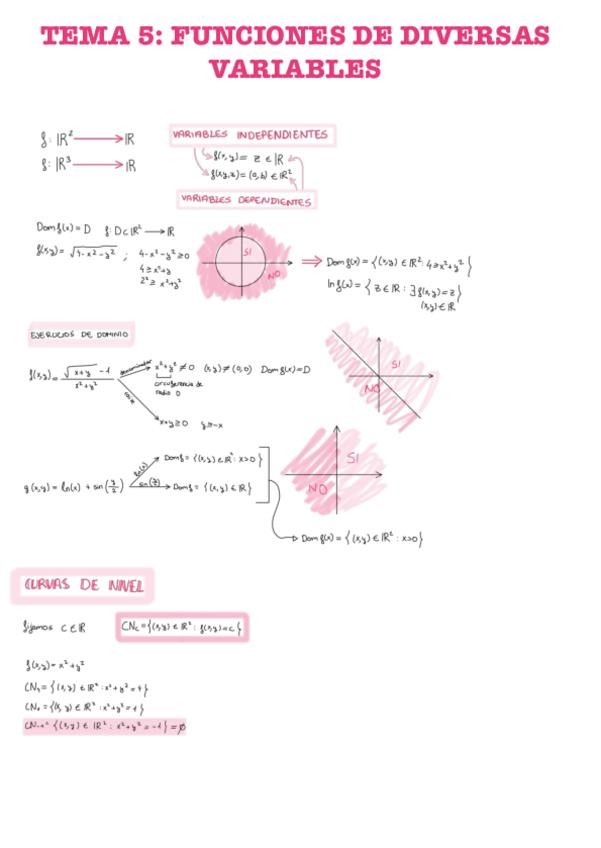 TEMA 5: FUNCIONES DE DIVERSAS
VARIABLES
f: IR² → IR
f: IR³ → IR
VARIABLES INDEPENDIENTES
f(x,y) = z ∈ IR
f(x,y,z) = (a,b) ∈ IR²
VARIABLES DEPENDIENTES
Dom f(x) = D f: D⊂IR² → IR
f(x,y) = √4-x²-y² ; 4-x²-y² ≥ 0
4 ≥ x²+y
2² ≥ x²+y²
SI
NO
⇒ Dom f(x) = {(x,y) ∈ IR²: 4 ≥ x²+y²}
Im f(x) = {z ∈ IR : ∃ f(x,y) = z}
(x,y) ∈ IR
EJERCICIOS DE DOMINIO
f(x,y) = √x+y -1 / x²+y²
denominador
x²+y² ≠ 0 (x,y) ≠ (0,0) Dom f(x) = D
circunferencia de
radio 0
raíz
x+y ≥ 0 y ≥ -x
SI
NO
g(x,y) = ln(x) + sin()
ln(x)
Dom f = {(x,y) ∈ IR²: x>0}
Dom f = {(x,y) ∈ IR}
SI
NO
Dom f(x) = {(x,y) ∈ IR² : x>0}
CURVAS DE NIVEL
fijamos C ∈ IR
CNc = {(x,y) ∈ IR² : f(x,y) = c}
f(x,y) = x² + y²
CN₄ = {(x,y) ∈ IR² : x² + y² = 4}
CN₁ = {(x,y) ∈ IR² : x² + y² = 1}
CN₋₁ = {(x,y) ∈ IR² : x² + y² = -1} = ∅